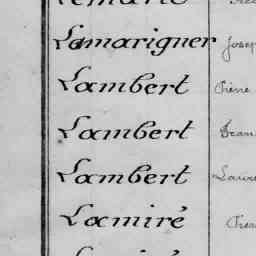 Lamarigner Josep
Lambert
Lambert Jean
Lambert Laure
Lamiré